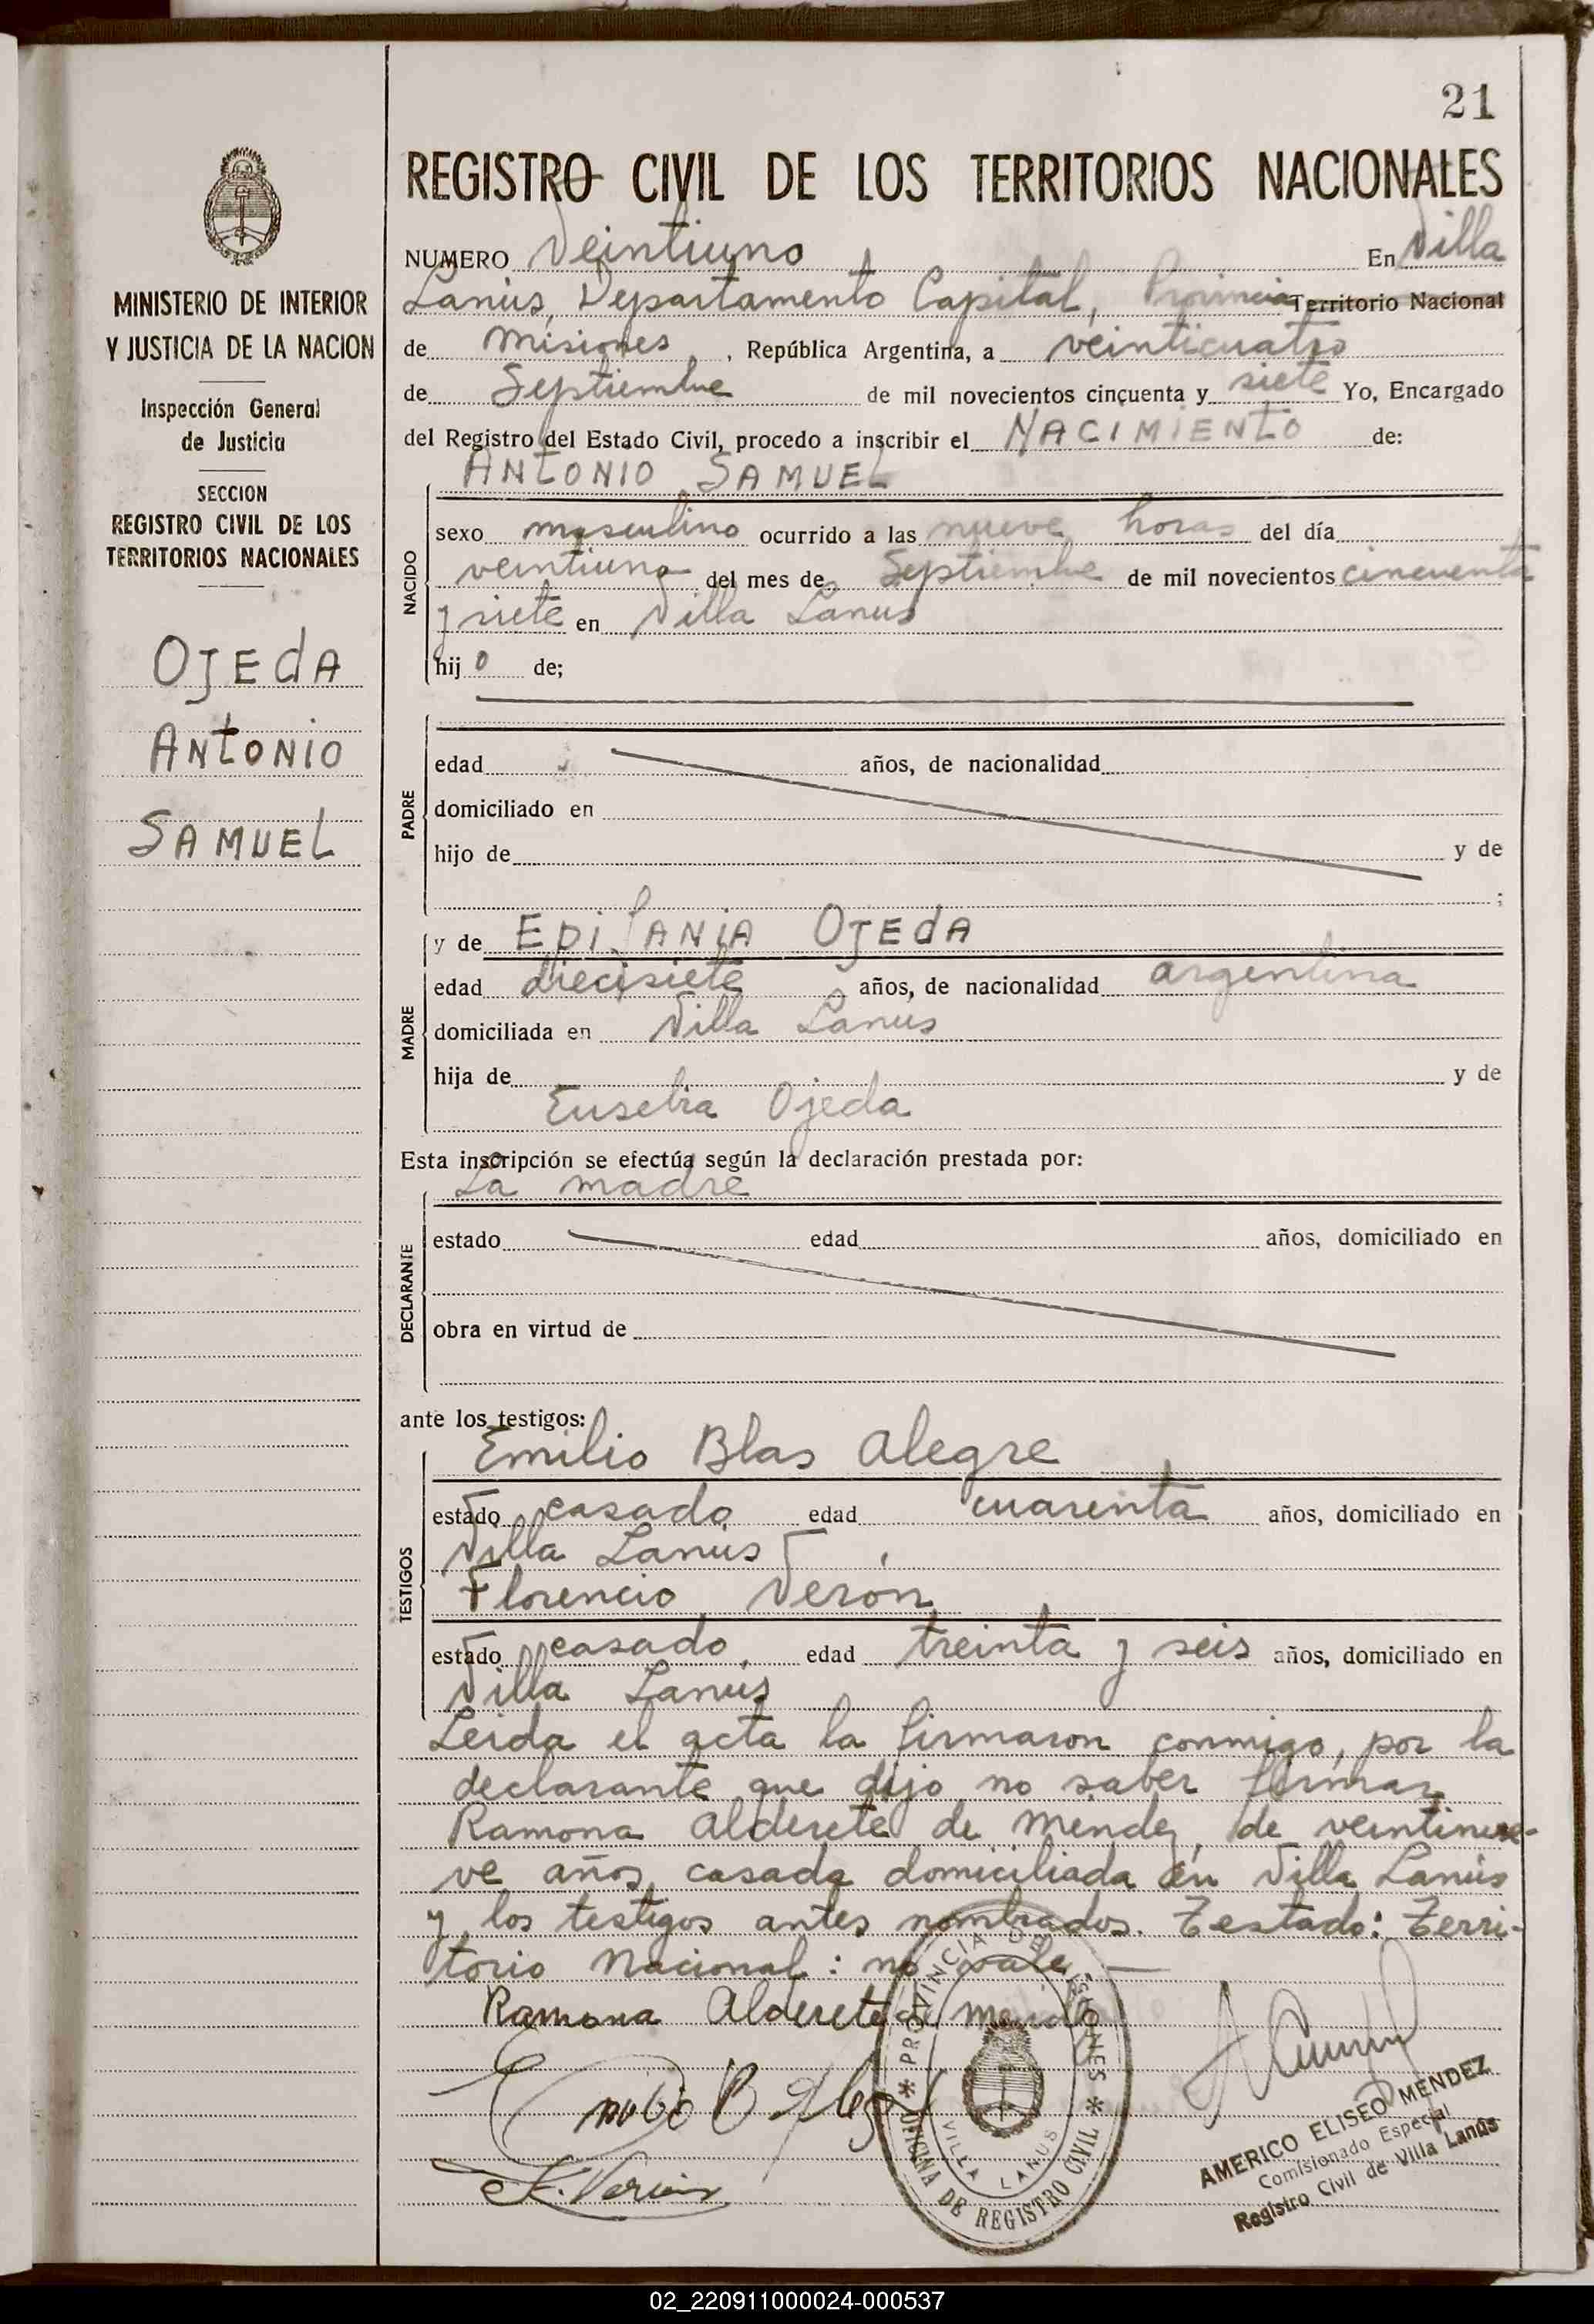 21
REGISTRO CIVIL DE LOS TERRITORIOS NACIONALES
NUMERO Veintiuno En Villa
Lanús, Departamento Capital, Provincia Territorio Nacional
de Misiones, República Argentina, a veinticuatro
de Septiembre de mil novecientos cincuenta y siete Yo, Encargado
del Registro del Estado Civil, procedo a inscribir el NACIMIENTO de:
ANTONIO SAMUEL
NACIDO
sexo masculino ocurrido a las nueve horas del día
veintiuno del mes de Septiembre de mil novecientos cincuenta
y siete en Villa Lanus
hijo de;
PADRE
edad años, de nacionalidad
domiciliado en
hijo de y de
;
MADRE
y de EPIFANIA OJEDA
edad diecisiete años, de nacionalidad argentina
domiciliada en Villa Lanús
hija de y de
Eusebia Ojeda
Esta inscripción se efectúa según la declaración prestada por:
La madre
DECLARANTE
estado edad años, domiciliado en
obra en virtud de
ante los testigos:
TESTIGOS
Emilio Blas Alegre
estado casado edad cuarenta años, domiciliado en
Villa Lanús
Florencio Verón
estado casado, edad treinta y seis años, domiciliado en
Villa Lanús
Leida el acta la firmaron conmigo, por la
declarante que dijo no saber firmar
Ramona Alderete de Mendez, de veintinue-
ve años, casada domiciliada en Villa Lanús
y los testigos antes nombrados. Testado: Terri-
torio Nacional: no vale.—
Ramona Alderete de
F. Verón
* PROVINCIA DE MISIONES *
OFICINA DE REGISTRO CIVIL
VILLA LANUS
AMERICO ELISEO MENDEZ
Comisionado Especial
Registro Civil de Villa Lanús
MINISTERIO DE INTERIOR
Y JUSTICIA DE LA NACION
Inspección General
de Justicia
SECCION
REGISTRO CIVIL DE LOS
TERRITORIOS NACIONALES
OJEDA
ANTONIO
SAMUEL
02_220911000024-000537